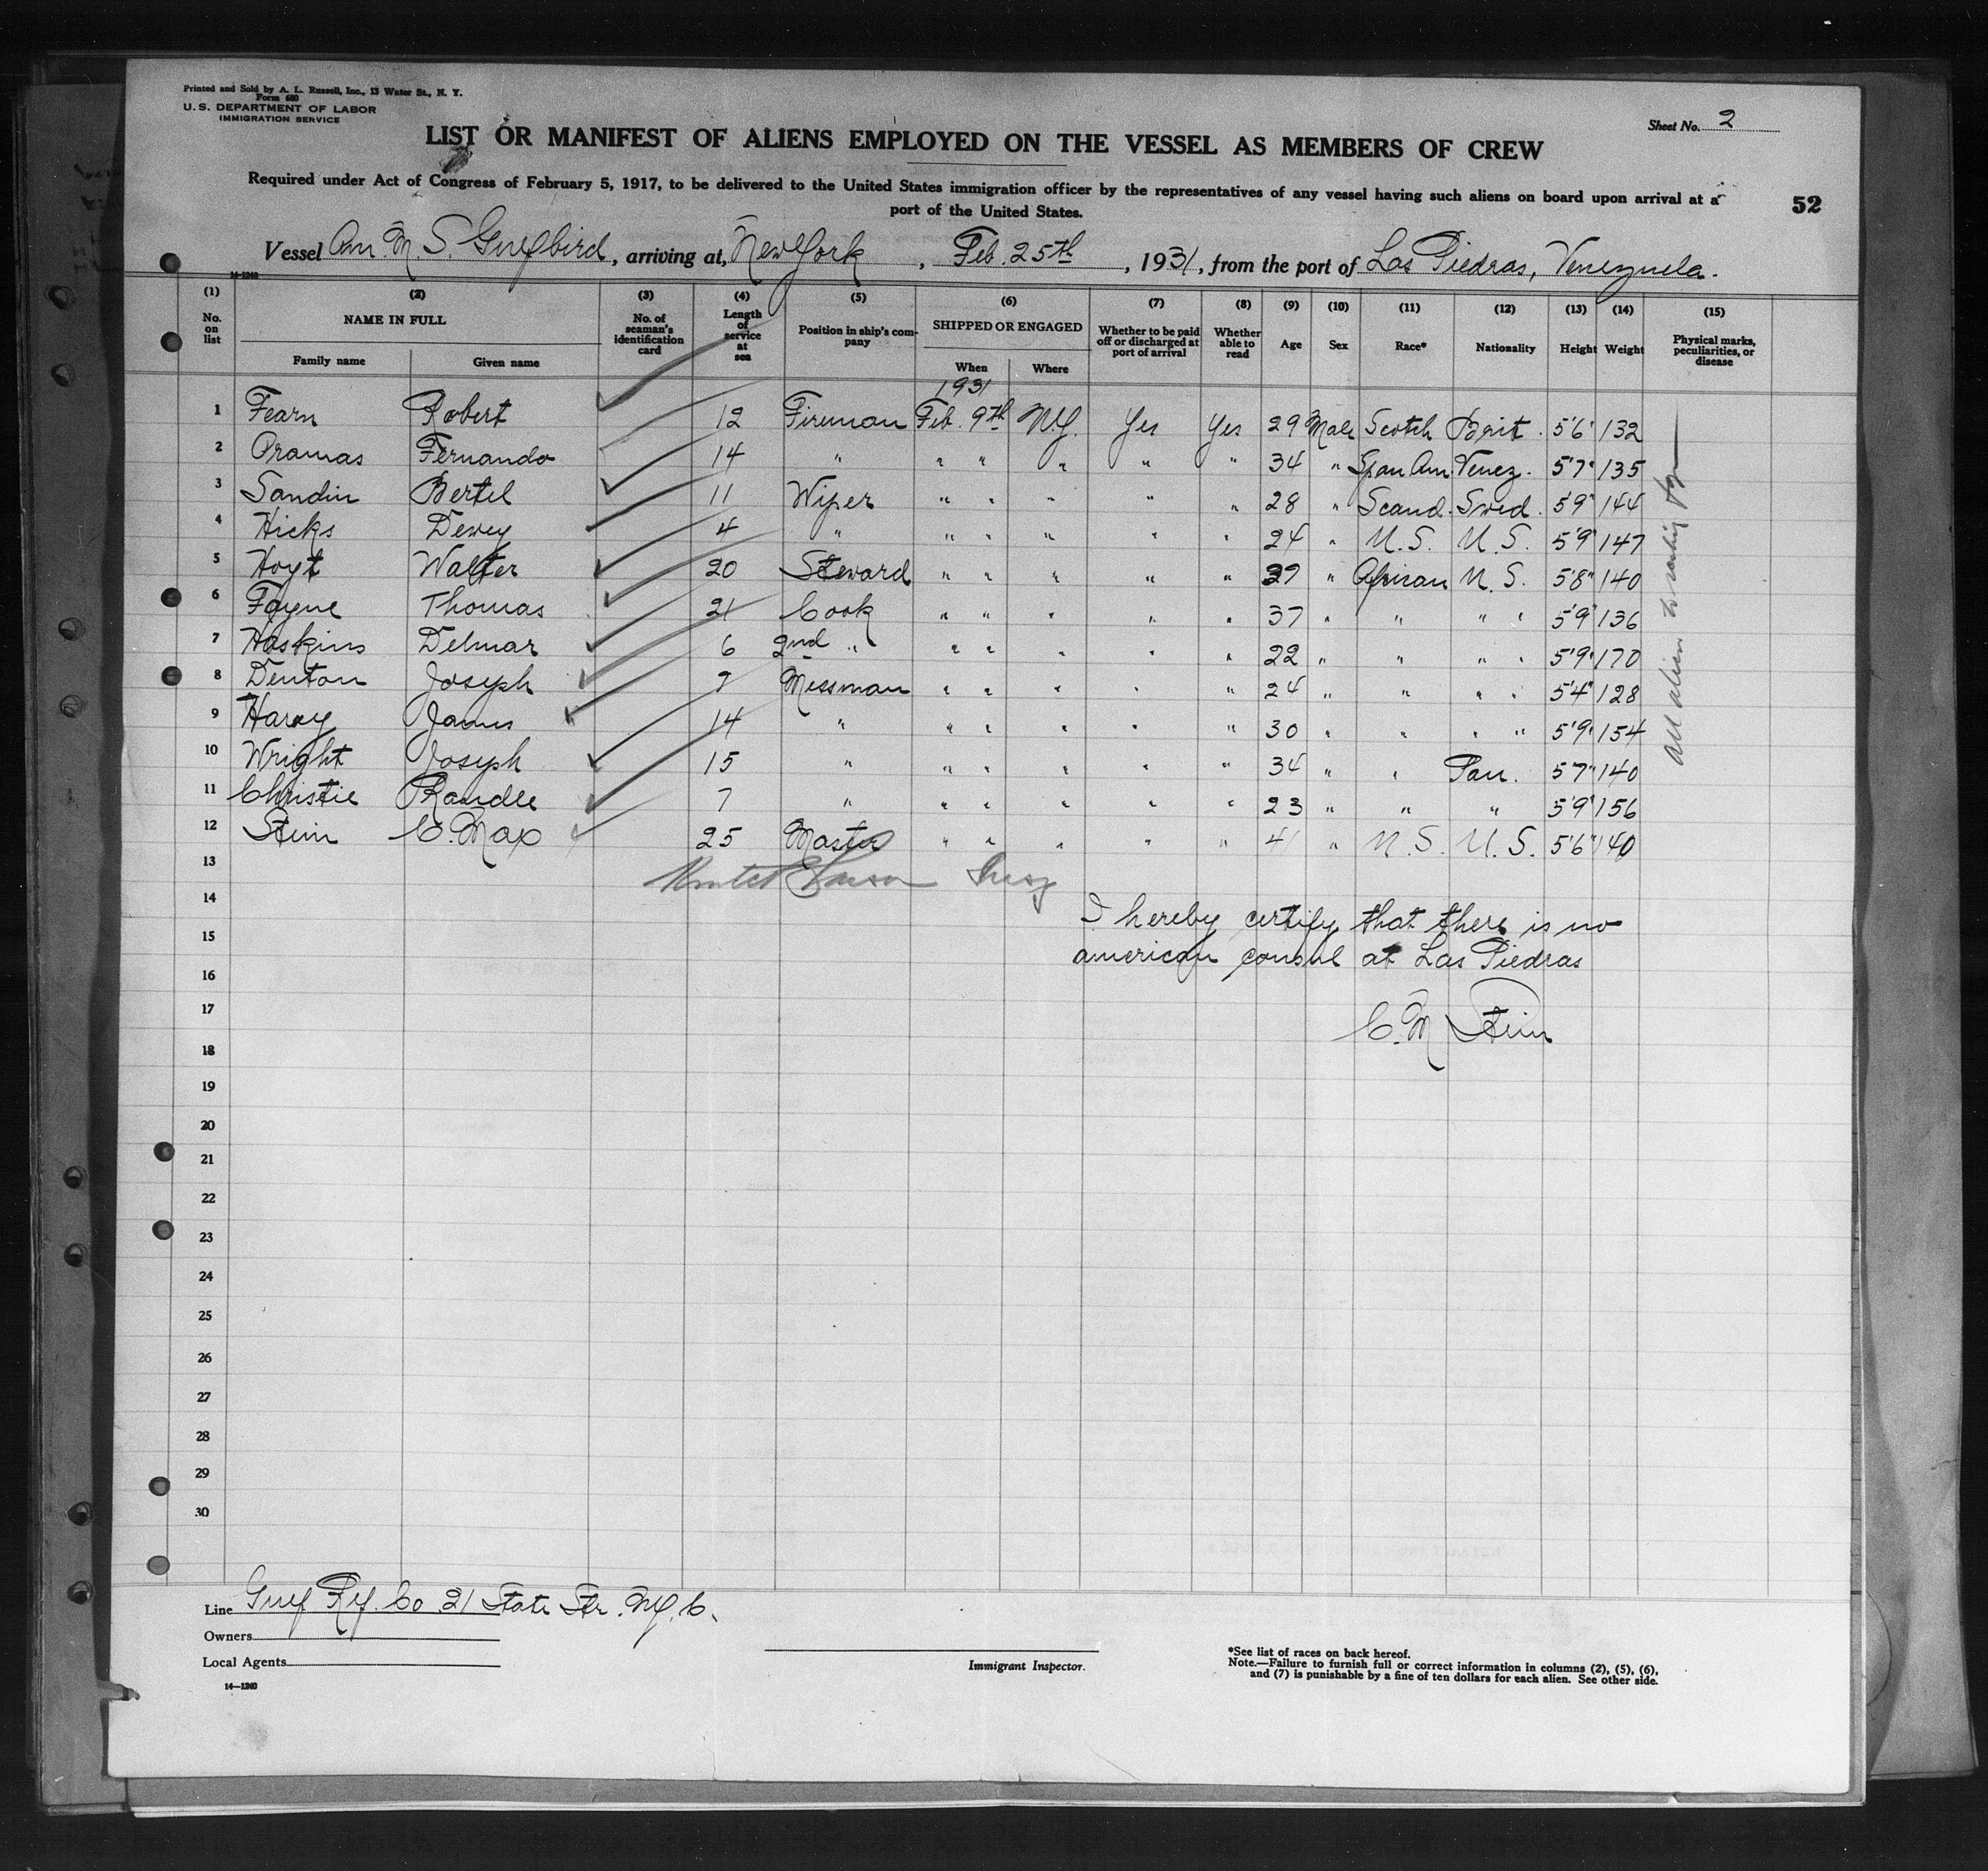 Printed and Sold by A. L. Russell, Inc., 13 Water St., N. Y.
Form 680
U. S. DEPARTMENT OF LABOR
IMMIGRATION SERVICE
Sheet No. 2
LIST OR MANIFEST OF ALIENS EMPLOYED ON THE VESSEL AS MEMBERS OF CREW
Required under Act of Congress of February 5, 1917, to be delivered to the United States immigration officer by the representatives of any vessel having such aliens on board upon arrival at a
port of the United States.
52
Vessel Am. M. S. Gulfbird, arriving at, New York, Feb. 25th, 1931, from the port of Las Piedras, Venezuela.
14-1240
(1) No. on list (2) NAME IN FULL Family name Given name (3) No. of seaman's identification card (4) Length of service at sea (5) Position in ship's company (6) SHIPPED OR ENGAGED When Where (7) Whether to be paid off or discharged at port of arrival (8) Whether able to read (9) Age (10) Sex (11) Race* (12) Nationality (13) Height (14) Weight (15) Physical marks, peculiarities, or disease
1931
1 Fearn Robert 12 Fireman Feb. 9th N.Y. Yes Yes 29 Male Scotch Brit. 5'6" 132
2 Oramas Fernando 14 " " " " " " 34 " Span Am. Venez. 5'7" 135
3 Sandin Bertel 11 Wiper " " " " " 28 " Scand. Swed. 5'9" 144
4 Hicks Dewey 4 " " " " " " 24 " U.S. U.S. 5'9" 147
5 Hoyt Walter 20 Steward " " " " " 39 " African U.S. 5'8" 140
6 Fayne Thomas 21 Cook " " " " " 37 " " " " 5'9" 136
7 Haskins Delmar 6 2nd " " " " " " 22 " " " " 5'9" 170
8 Denton Joseph 7 Messman " " " " " 24 " " " " 5'4" 128
9 Harvy James 14 " " " " " " 30 " " " " 5'9" 154
10 Wright Joseph 15 " " " " " " 34 " " Pan. 5'7" 140
11 Christie Randle 7 " " " " " " 23 " " " 5'9" 156
12 Stein C. Max 25 Master " " " " " 41 " U.S. U.S. 5'6" 140
13
14
I hereby certify that there is no
15
american consul at Las Piedras
16
17
C. M Stein
18
19
20
21
22
23
24
25
26
27
28
29
30
All alien to reship
Line Gulf Rf. Co 21 State Str. N.Y.C.
Owners
Local Agents
14-1240
Immigrant Inspector.
*See list of races on back hereof.
Note.—Failure to furnish full or correct information in columns (2), (5), (6),
and (7) is punishable by a fine of ten dollars for each alien. See other side.